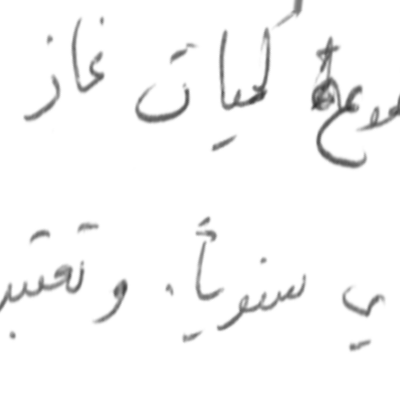 كميات غاز
ي سنوياً. وتعتبر